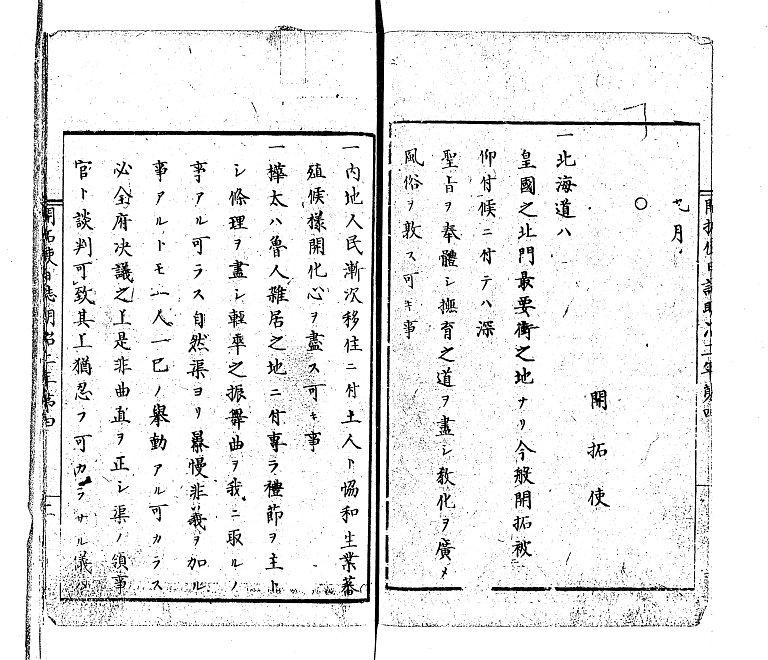 九月
○
開拓使
一北海道ハ
皇國之北門最要衝之地ナリ今般開拓被
仰付候ニ付テハ深
聖旨ヲ奉體シ撫育之道ヲ盡シ教化ヲ廣メ
風俗ヲ敦ス可キ事
一內地人民漸次移住ニ付土人ト協和生業蕃
殖候樣開化心ヲ盡ス可キ事
一樺太ハ魯人雜居之地ニ付專ラ禮節ヲ主ト
シ條理ヲ盡シ輕率之振舞曲ヲ我ニ取ルノ
事アル可ラス自然渠ヨリ暴慢非義ヲ加ル
事アルトモ一人一己ノ擧動アル可カラス
必全府決議之上是非曲直ヲ正シ渠ノ領事
官ト談判可致其上猶忍フ可カラサル儀ハ
開拓使日誌明治二年第四